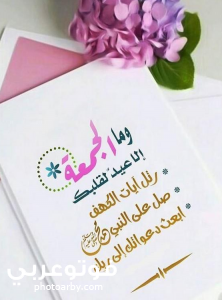 وما الجمعة
إلا عيد لقلبك
* رتل آيات الكهف
* صل على النبي ﷺ
* ابعث دعواتك إلى ربك
موتوعربي
photoarby.com